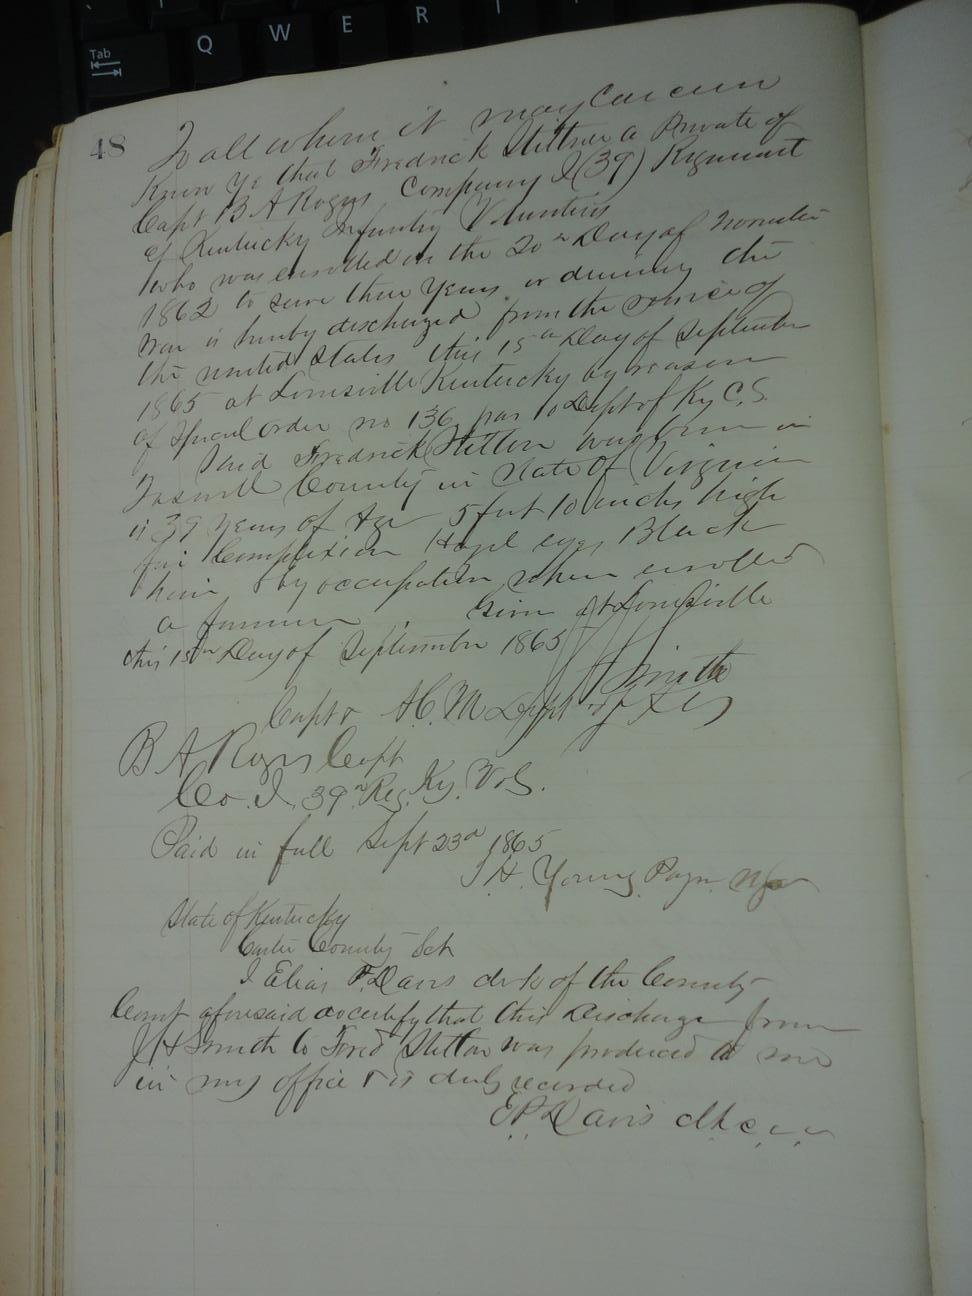 Tab
Q W E R T
48
To all whom it may Concern
Know Ye that Fredrick Stittner a Private of
Capt B A Rogers Company I (39) Regiment
of Kentucky Infantry Volunteers
who was enrolled on the 20th Day of November
1862 to serve three Years or during the
war is hereby discharged from the service of
the united States this 15th Day of September
1865 at Louisville Kentucky by reason
of Special order no 136 par 10 Dept of Ky C.S.
Said Fredrick Stitton was born in
County in State of Virginia
is 39 Years of Age 5 feet 10 inches high
fair Complexion Hazel eyes Black
hair & by occupation when enrolled
a farmer. Given at Louisville
this 15th Day of September 1865
J H Smith
Capt & A C M Dept of Ky
B A Rogers Capt
Co. I, 39th Reg. Ky. Vols.
Paid in full Sept 23d 1865
J H. Young Paym
State of Kentucky
Carter County Sct
I Elias P. Davis clerk of the County
Court aforesaid do certify that this Discharge from
J H Smith to Fred Stitton was produced to me
in my office & is duly recorded
E.P. Davis clk